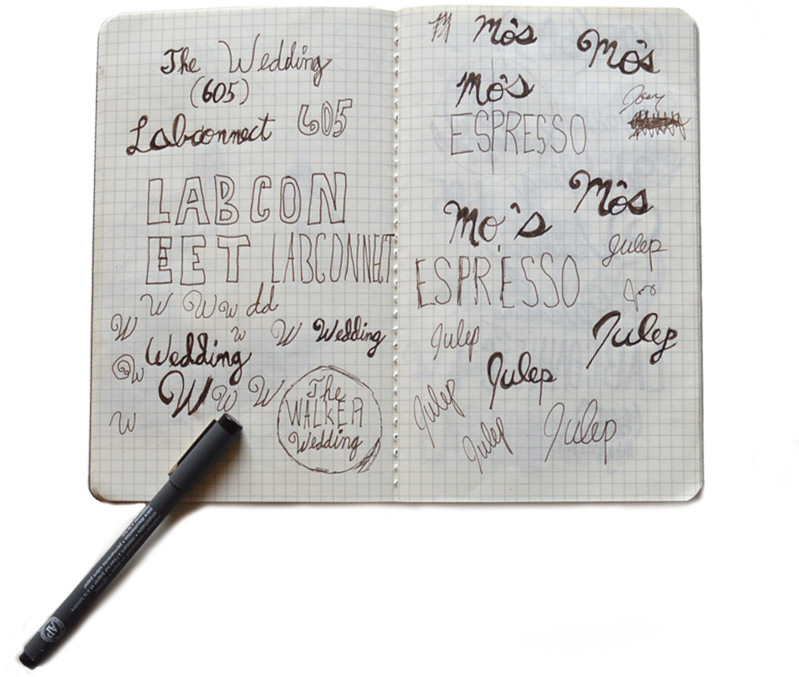 The Wedding
(605)
Labconnect 605
LABCON
EET LABCONNECT
W W W w dd
W w W Wedding
Wedding
W
W W W
W
The
WALKER
Wedding
M Mo's Mo's
Mo's
Joey
ESPRESSO
Mo's
Mo's
Julep
ESPRESSO
Julep
Julep
Julep
Julep
Julep
Julep
AP